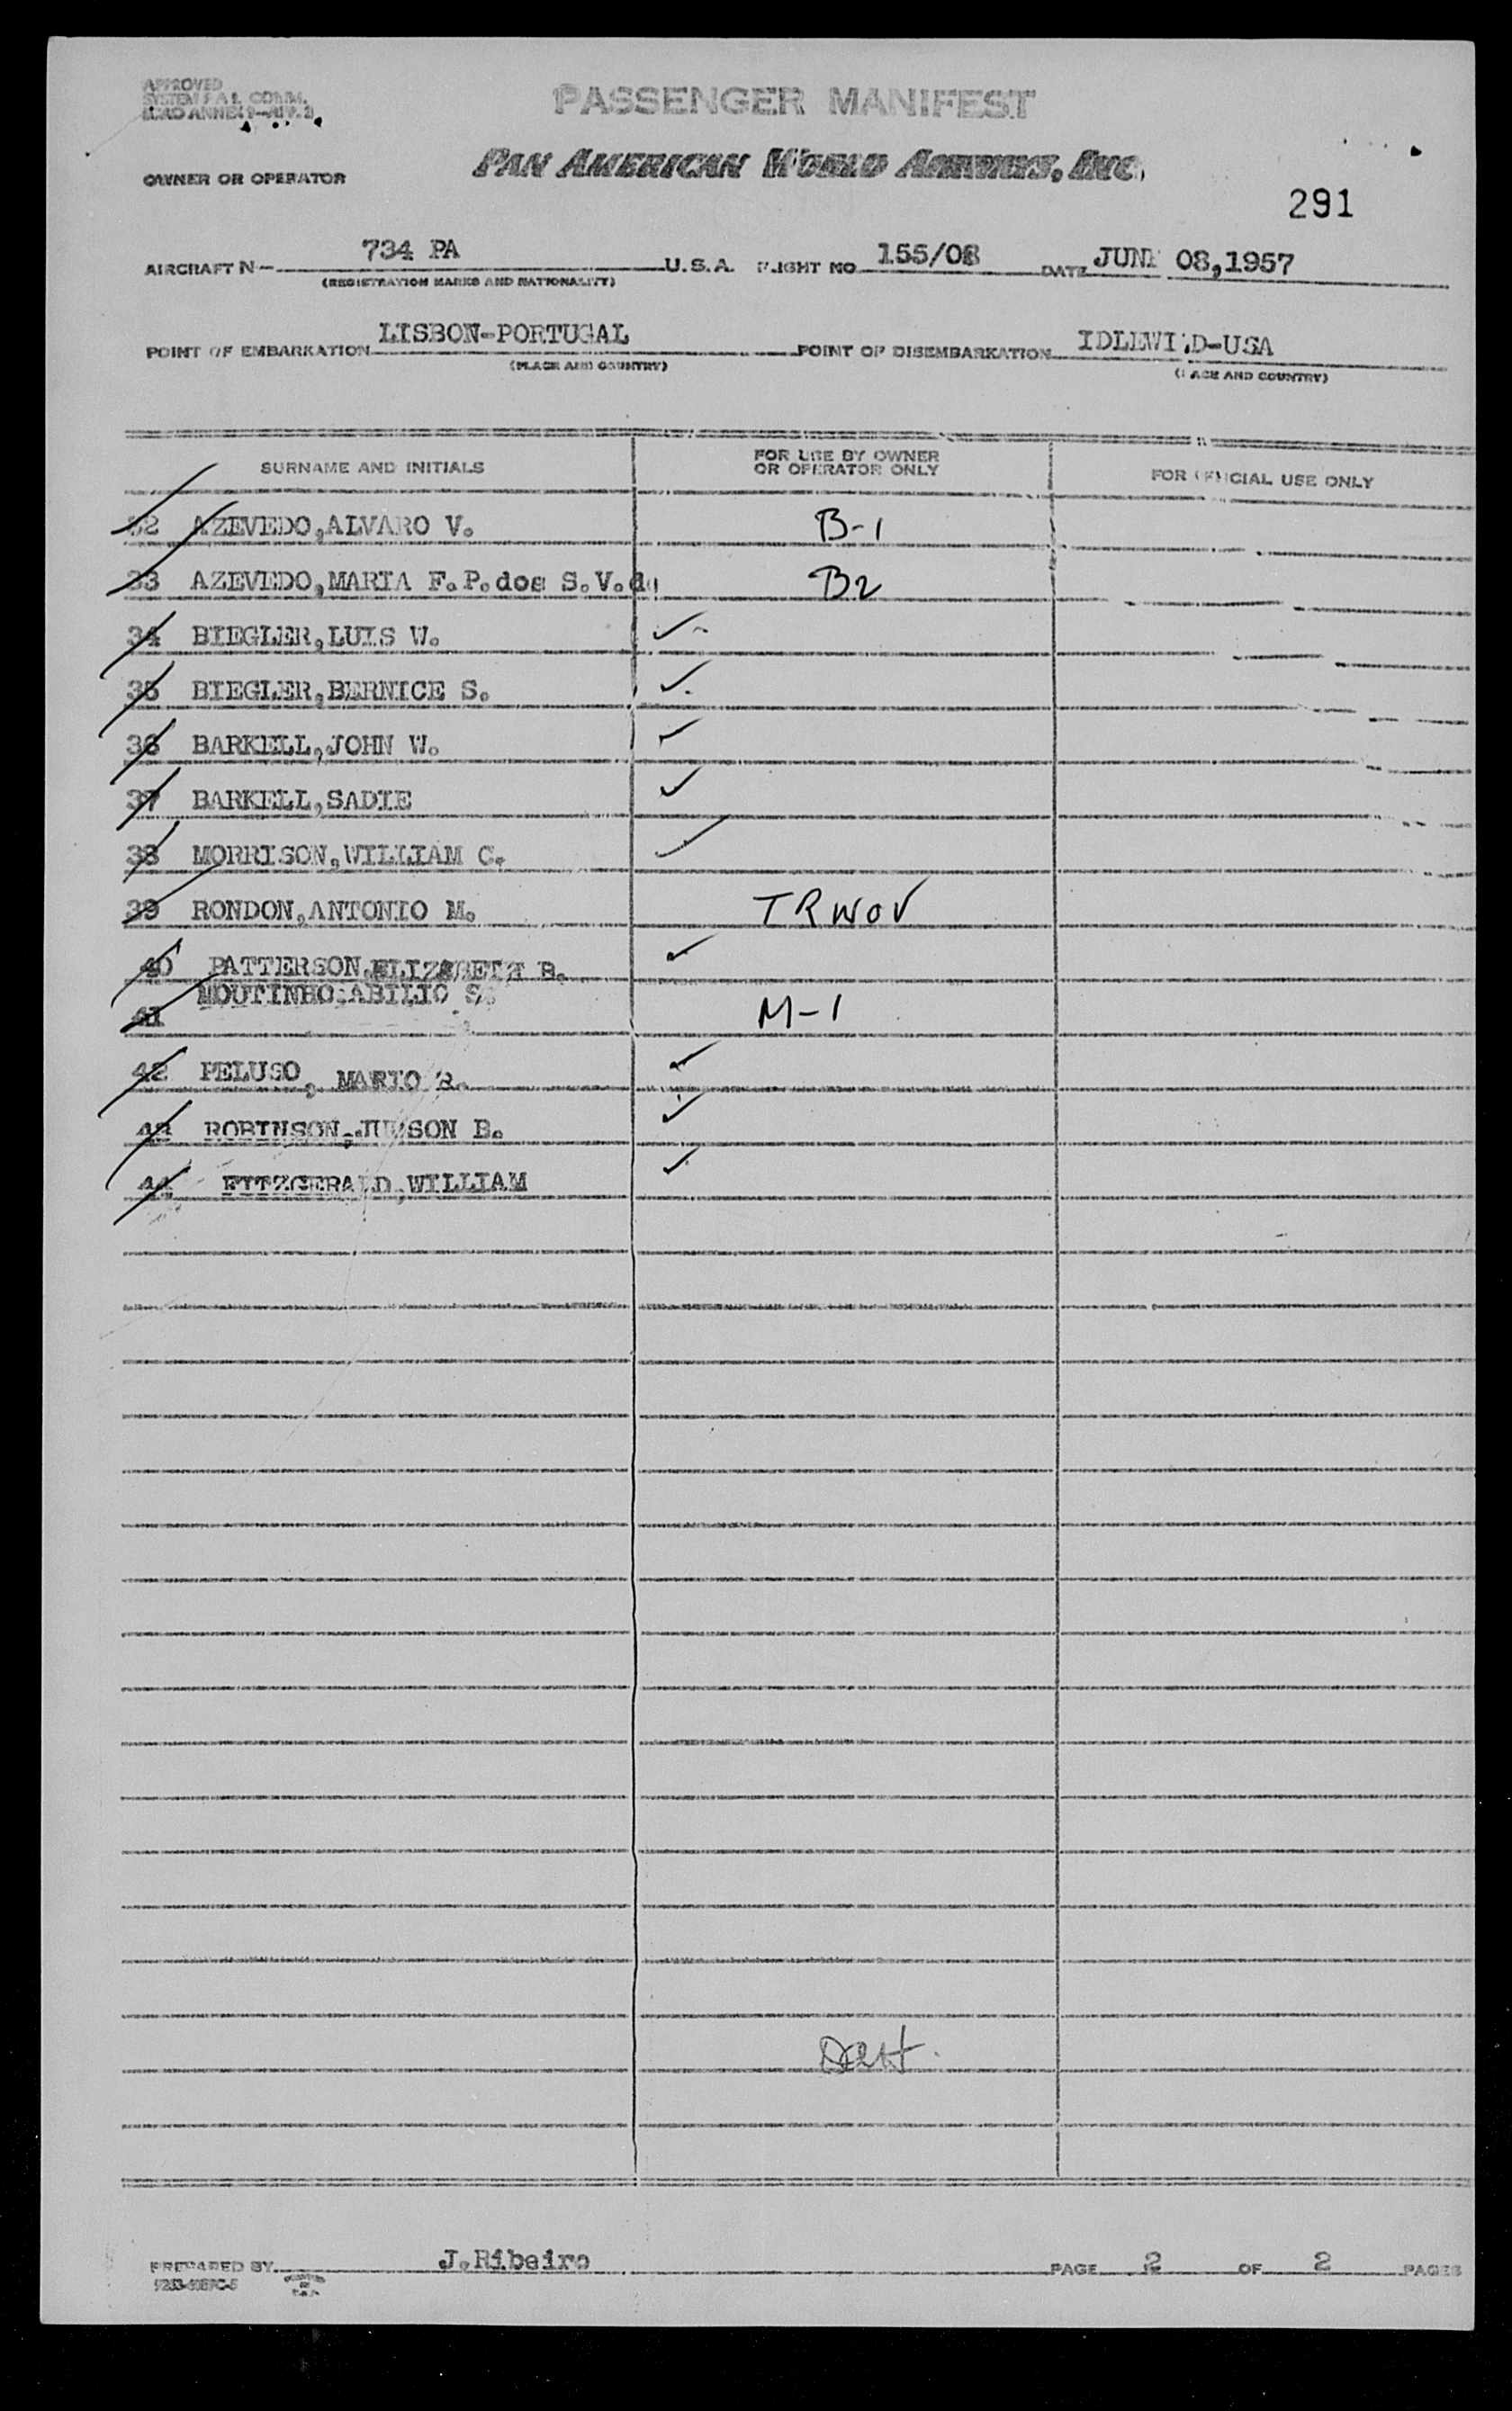 APPROVED
SYSTEM FAL COMM.
ICAO ANNEX 9-APP. 2
PASSENGER MANIFEST
OWNER OR OPERATOR PAN AMERICAN WORLD AIRWAYS, INC.
291
AIRCRAFT N- 734 PA U.S.A. FLIGHT NO 155/08 DATE JUNE 08,1957
(REGISTRATION MARKS AND NATIONALITY)
POINT OF EMBARKATION LISBON-PORTUGAL POINT OF DISEMBARKATION IDLEWILD-USA
(PLACE AND COUNTRY) (PLACE AND COUNTRY)
SURNAME AND INITIALS FOR USE BY OWNER OR OPERATOR ONLY FOR OFFICIAL USE ONLY
32 AZEVEDO,ALVARO V. B-1
33 AZEVEDO,MARIA F.P.dos S.V.de B2
34 BIEGLER,LUIS W. ✓
35 BIEGLER,BERNICE S. ✓
36 BARKELL,JOHN W. ✓
37 BARKELL,SADIE ✓
38 MORRISON,WILLIAM C. ✓
39 RONDON,ANTONIO M. TRWOV
40 PATTERSON,ELIZABETH B. ✓
41 MOUTINHO,ABILIO S. M-1
42 PELUSO, MARIO R. ✓
43 ROBINSON, SON B. ✓
44 FITZGERALD,WILLIAM ✓
PREPARED BY J.Ribeiro PAGE 2 OF 2 PAGES